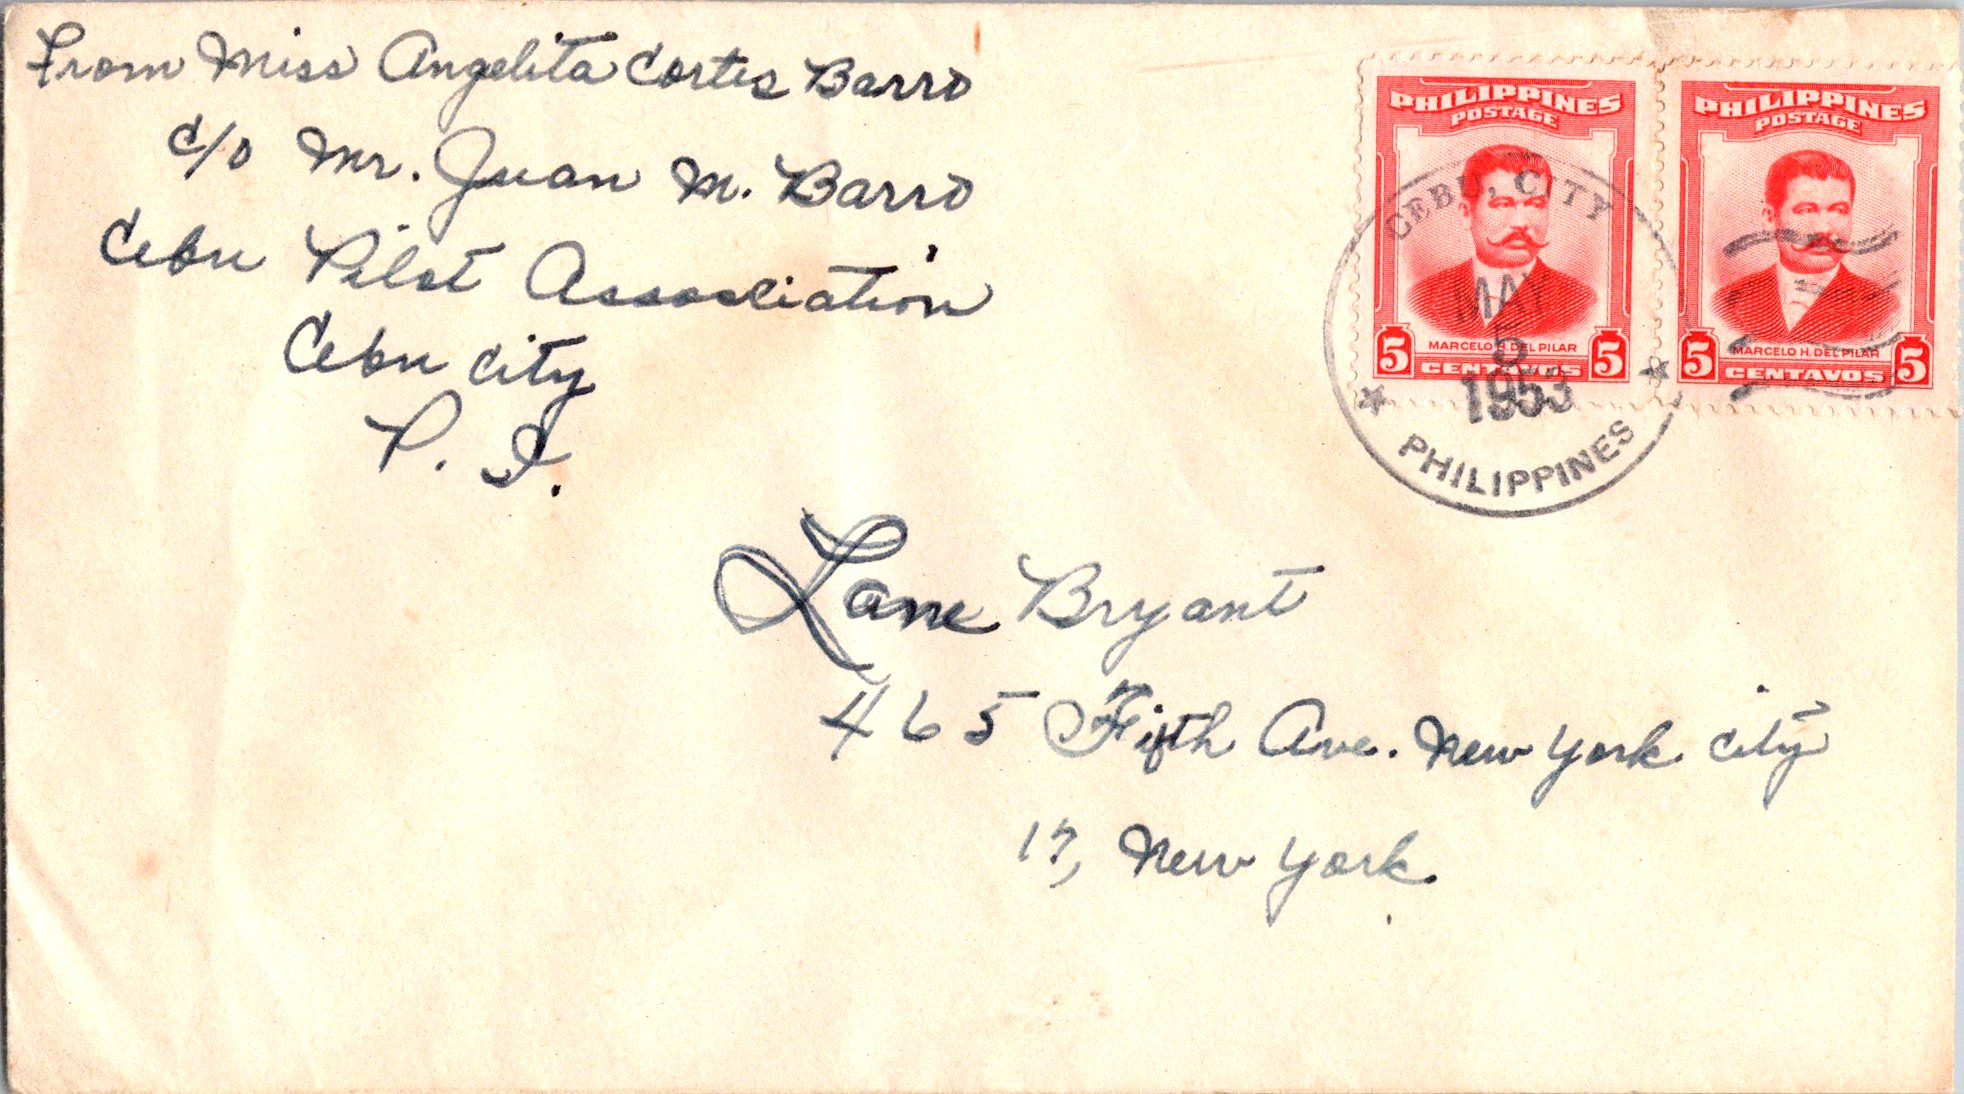 From Miss Angelita Cortes Barro
c/o Mr. Juan M. Barro
Cebu Pilot Association
Cebu City
P. I.
PHILIPPINES
POSTAGE
MARCELO H. DEL PILAR
5 CENTAVOS 5
PHILIPPINES
POSTAGE
MARCELO H. DEL PILAR
5 CENTAVOS 5
CEBU, CITY
MAY
5
1953
PHILIPPINES
Lane Bryant
465 Fifth Ave. New York City
17, New York.